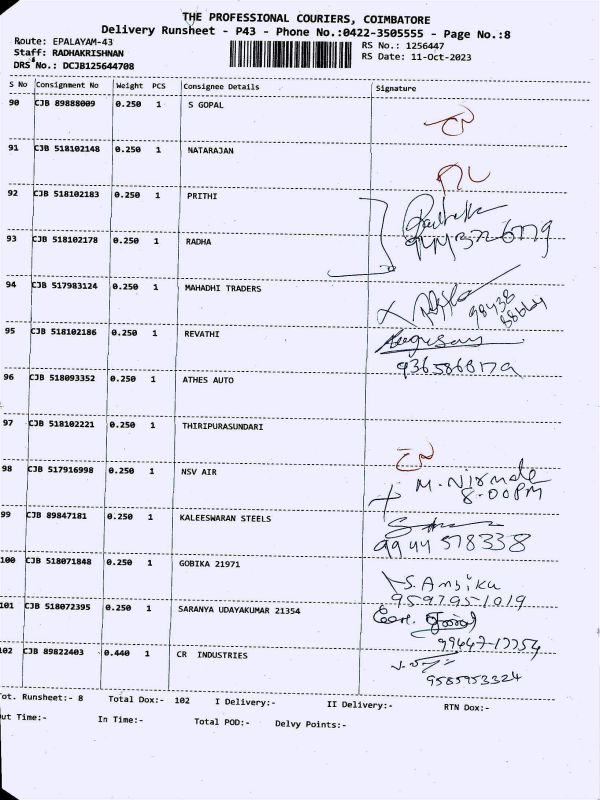 THE PROFESSIONAL COURIERS, COIMBATORE
Delivery Runsheet - P43 - Phone No.:0422-3505555 - Page No.:8
Route: EPALAYAM-43
RS No.: 1256447
Staff: RADHAKRISHNAN
RS Date: 11-Oct-2023
DRS No.: DCJB125644708
S No Consignment No Weight PCS Consignee Details Signature
90 CJB 89888009 0.250 1 S GOPAL
91 CJB 518102148 0.250 1 NATARAJAN
92 CJB 518102183 0.250 1 PRITHI
93 CJB 518102178 0.250 1 RADHA
94 CJB 517983124 0.250 1 MAHADHI TRADERS
95 CJB 518102186 0.250 1 REVATHI
96 CJB 518093352 0.250 1 ATHES AUTO
97 CJB 518102221 0.250 1 THIRIPURASUNDARI
98 CJB 517916998 0.250 1 NSV AIR
M. Nirmala
8-00PM
99 CJB 89847181 0.250 1 KALEESWARAN STEELS
9944 578338
100 CJB 518071848 0.250 1 GOBIKA 21971
S. Ambika
9597951019
101 CJB 518072395 0.250 1 SARANYA UDAYAKUMAR 21354
102 CJB 89822403 0.440 1 CR INDUSTRIES
9585953324
Tot. Runsheet:- 8 Total Dox:- 102 I Delivery:- II Delivery:- RTN Dox:-
Out Time:- In Time:- Total POD:- Delvy Points:-